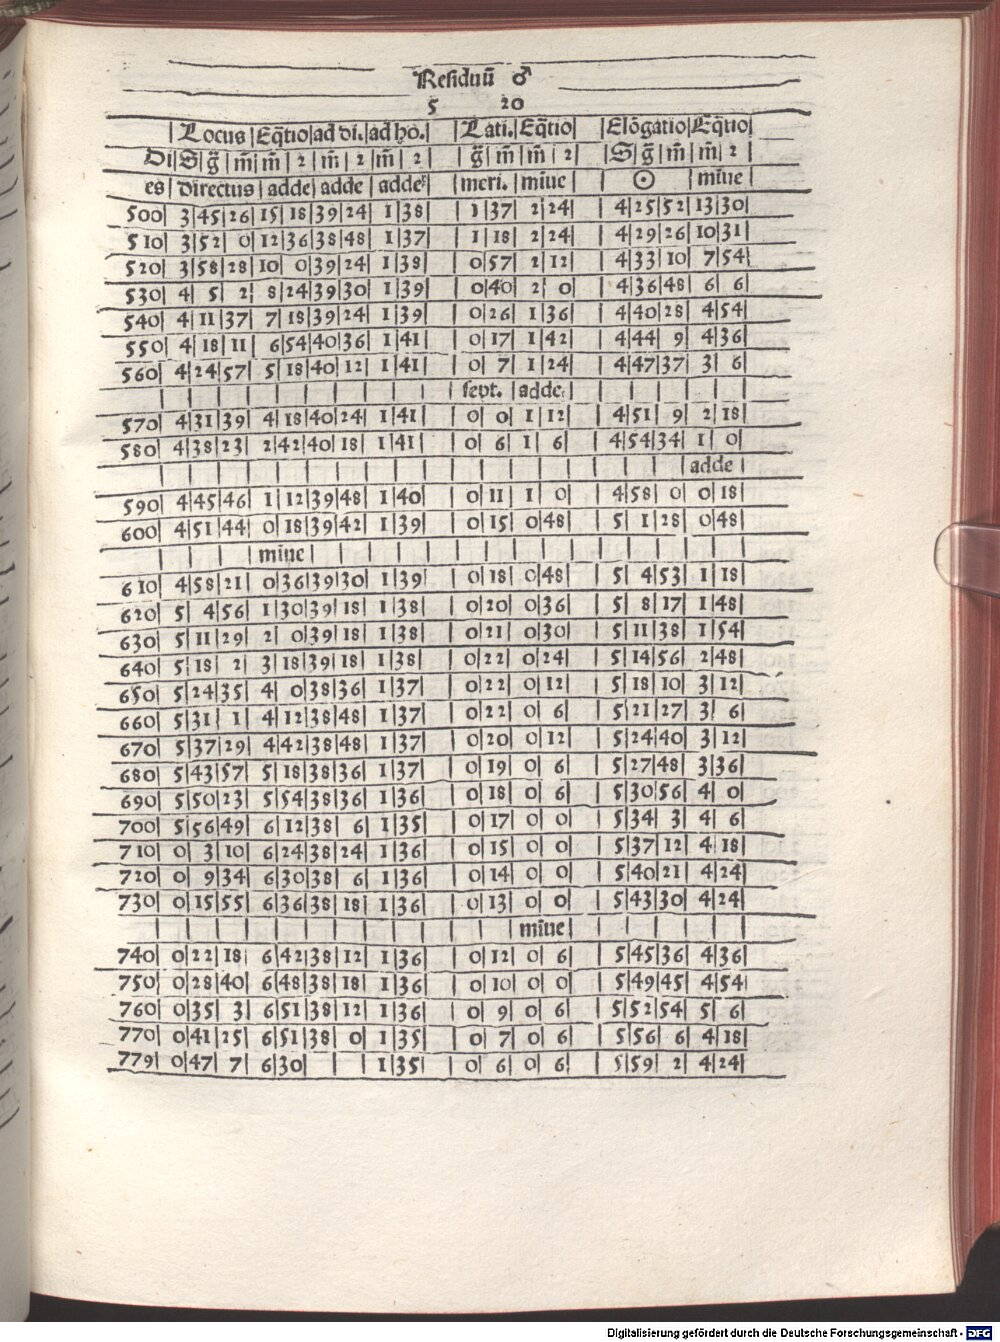 Residuū ♂
5 20
| Locus | Eq̄tio | ad di. | ad ho. | | Lati. | Eq̄tio | | Elōgatio | Eq̄tio |
Di | S | g̃ | m̃ | m̃ | 2 | m̃ | 2 | m̃ | 2 | g̃ | m̃ | m̃ | 2 | | S | g̃ | m̃ | m̃ | 2 |
es | directus | adde | adde | adde | | meri. | miūe | | ☉ | miūe
500| 3|45|26| 15|18|39|24| 1|38| | 1|37| 2|24| | 4|25|52|13|30|
510| 3|52| 0|12|36|38|48| 1|37| | 1|18| 2|24| | 4|29|26|10|31|
520| 3|58|28|10| 0|39|24| 1|38| | 0|57| 2|12| | 4|33|10| 7|54|
530| 4| 5| 2| 8|24|39|30| 1|39| | 0|40| 2| 0| | 4|36|48| 6| 6|
540| 4|11|37| 7|18|39|24| 1|39| | 0|26| 1|36| | 4|40|28| 4|54|
550| 4|18|11| 6|54|40|36| 1|41| | 0|17| 1|42| | 4|44| 9| 4|36|
560| 4|24|57| 5|18|40|12| 1|41| | 0| 7| 1|24| | 4|47|37| 3| 6|
sept. | adde |
570| 4|31|39| 4|18|40|24| 1|41| | 0| 0| 1|12| | 4|51| 9| 2|18|
580| 4|38|23| 2|42|40|18| 1|41| | 0| 6| 1| 6| | 4|54|34| 1| 0|
adde |
590| 4|45|46| 1|12|39|48| 1|40| | 0|11| 1| 0| | 4|58| 0| 0|18|
600| 4|51|44| 0|18|39|42| 1|39| | 0|15| 0|48| | 5| 1|28| 0|48|
miūe |
610| 4|58|21| 0|36|39|30| 1|39| | 0|18| 0|48| | 5| 4|53| 1|18|
620| 5| 4|56| 1|30|39|18| 1|38| | 0|20| 0|36| | 5| 8|17| 1|48|
630| 5|11|29| 2| 0|39|18| 1|38| | 0|21| 0|30| | 5|11|38| 1|54|
640| 5|18| 2| 3|18|39|18| 1|38| | 0|22| 0|24| | 5|14|56| 2|48|
650| 5|24|35| 4| 0|38|36| 1|37| | 0|22| 0|12| | 5|18|10| 3|12|
660| 5|31| 1| 4|12|38|48| 1|37| | 0|22| 0| 6| | 5|21|27| 3| 6|
670| 5|37|29| 4|42|38|48| 1|37| | 0|20| 0|12| | 5|24|40| 3|12|
680| 5|43|57| 5|18|38|36| 1|37| | 0|19| 0| 6| | 5|27|48| 3|36|
690| 5|50|23| 5|54|38|36| 1|36| | 0|18| 0| 6| | 5|30|56| 4| 0|
700| 5|56|49| 6|12|38| 6| 1|35| | 0|17| 0| 0| | 5|34| 3| 4| 6|
710| 0| 3|10| 6|24|38|24| 1|36| | 0|15| 0| 0| | 5|37|12| 4|18|
720| 0| 9|34| 6|30|38| 6| 1|36| | 0|14| 0| 0| | 5|40|21| 4|24|
730| 0|15|55| 6|36|38|18| 1|36| | 0|13| 0| 0| | 5|43|30| 4|24|
miūe |
740| 0|22|18| 6|42|38|12| 1|36| | 0|12| 0| 6| | 5|45|36| 4|36|
750| 0|28|40| 6|48|38|18| 1|36| | 0|10| 0| 0| | 5|49|45| 4|54|
760| 0|35| 3| 6|51|38|12| 1|36| | 0| 9| 0| 6| | 5|52|54| 5| 6|
770| 0|41|25| 6|51|38| 0| 1|35| | 0| 7| 0| 6| | 5|56| 6| 4|18|
779| 0|47| 7| 6|30| | | 1|35| | 0| 6| 0| 6| | 5|59| 2| 4|24|
Digitalisierung gefördert durch die Deutsche Forschungsgemeinschaft - DFG